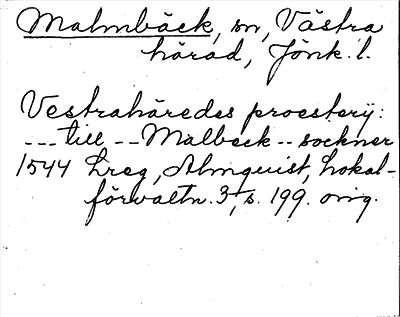 Malmbäck, sn, Västra
härad, Jönk. l.
Vestrahäredes proesterij:
--- till -- Malbeck -- sockner
1544 Lreg, Almquist, Lokal-
förvaltn. 3, s. 199. orig.